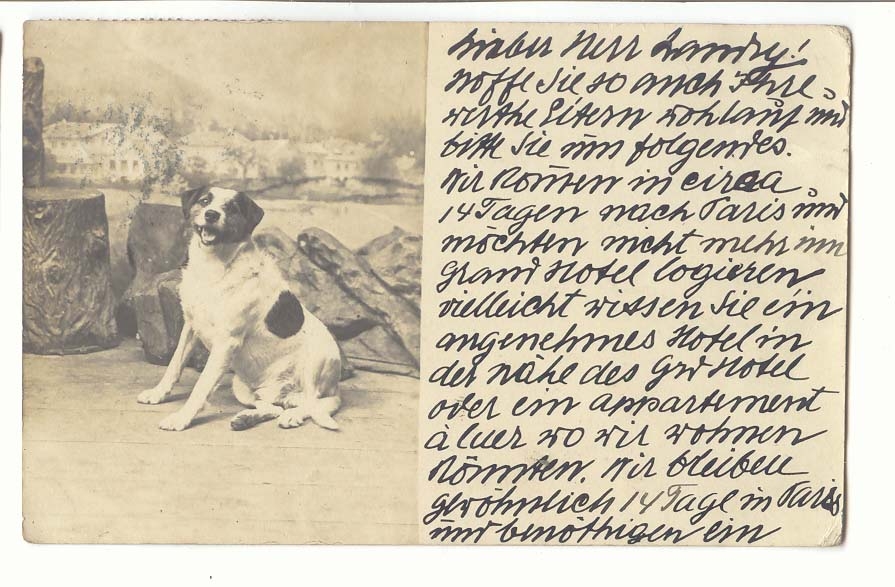 Lieber Herr Landry!
Hoffe Sie so auch Ihre
werthe Eltern wohlauf und
bitte Sie um folgendes.
Wir kom̄en in circa
14 Tagen nach Paris und
möchten nicht mehr im
Grand Hotel logieren
vielleicht wissen Sie ein
angenehmes Hotel in
der Nähe des Grd Hotel
oder ein appartement
à luer wo wir wohnen
könnten. Wir bleiben
gewöhnlich 14 Tage in Paris
und benöthigen ein